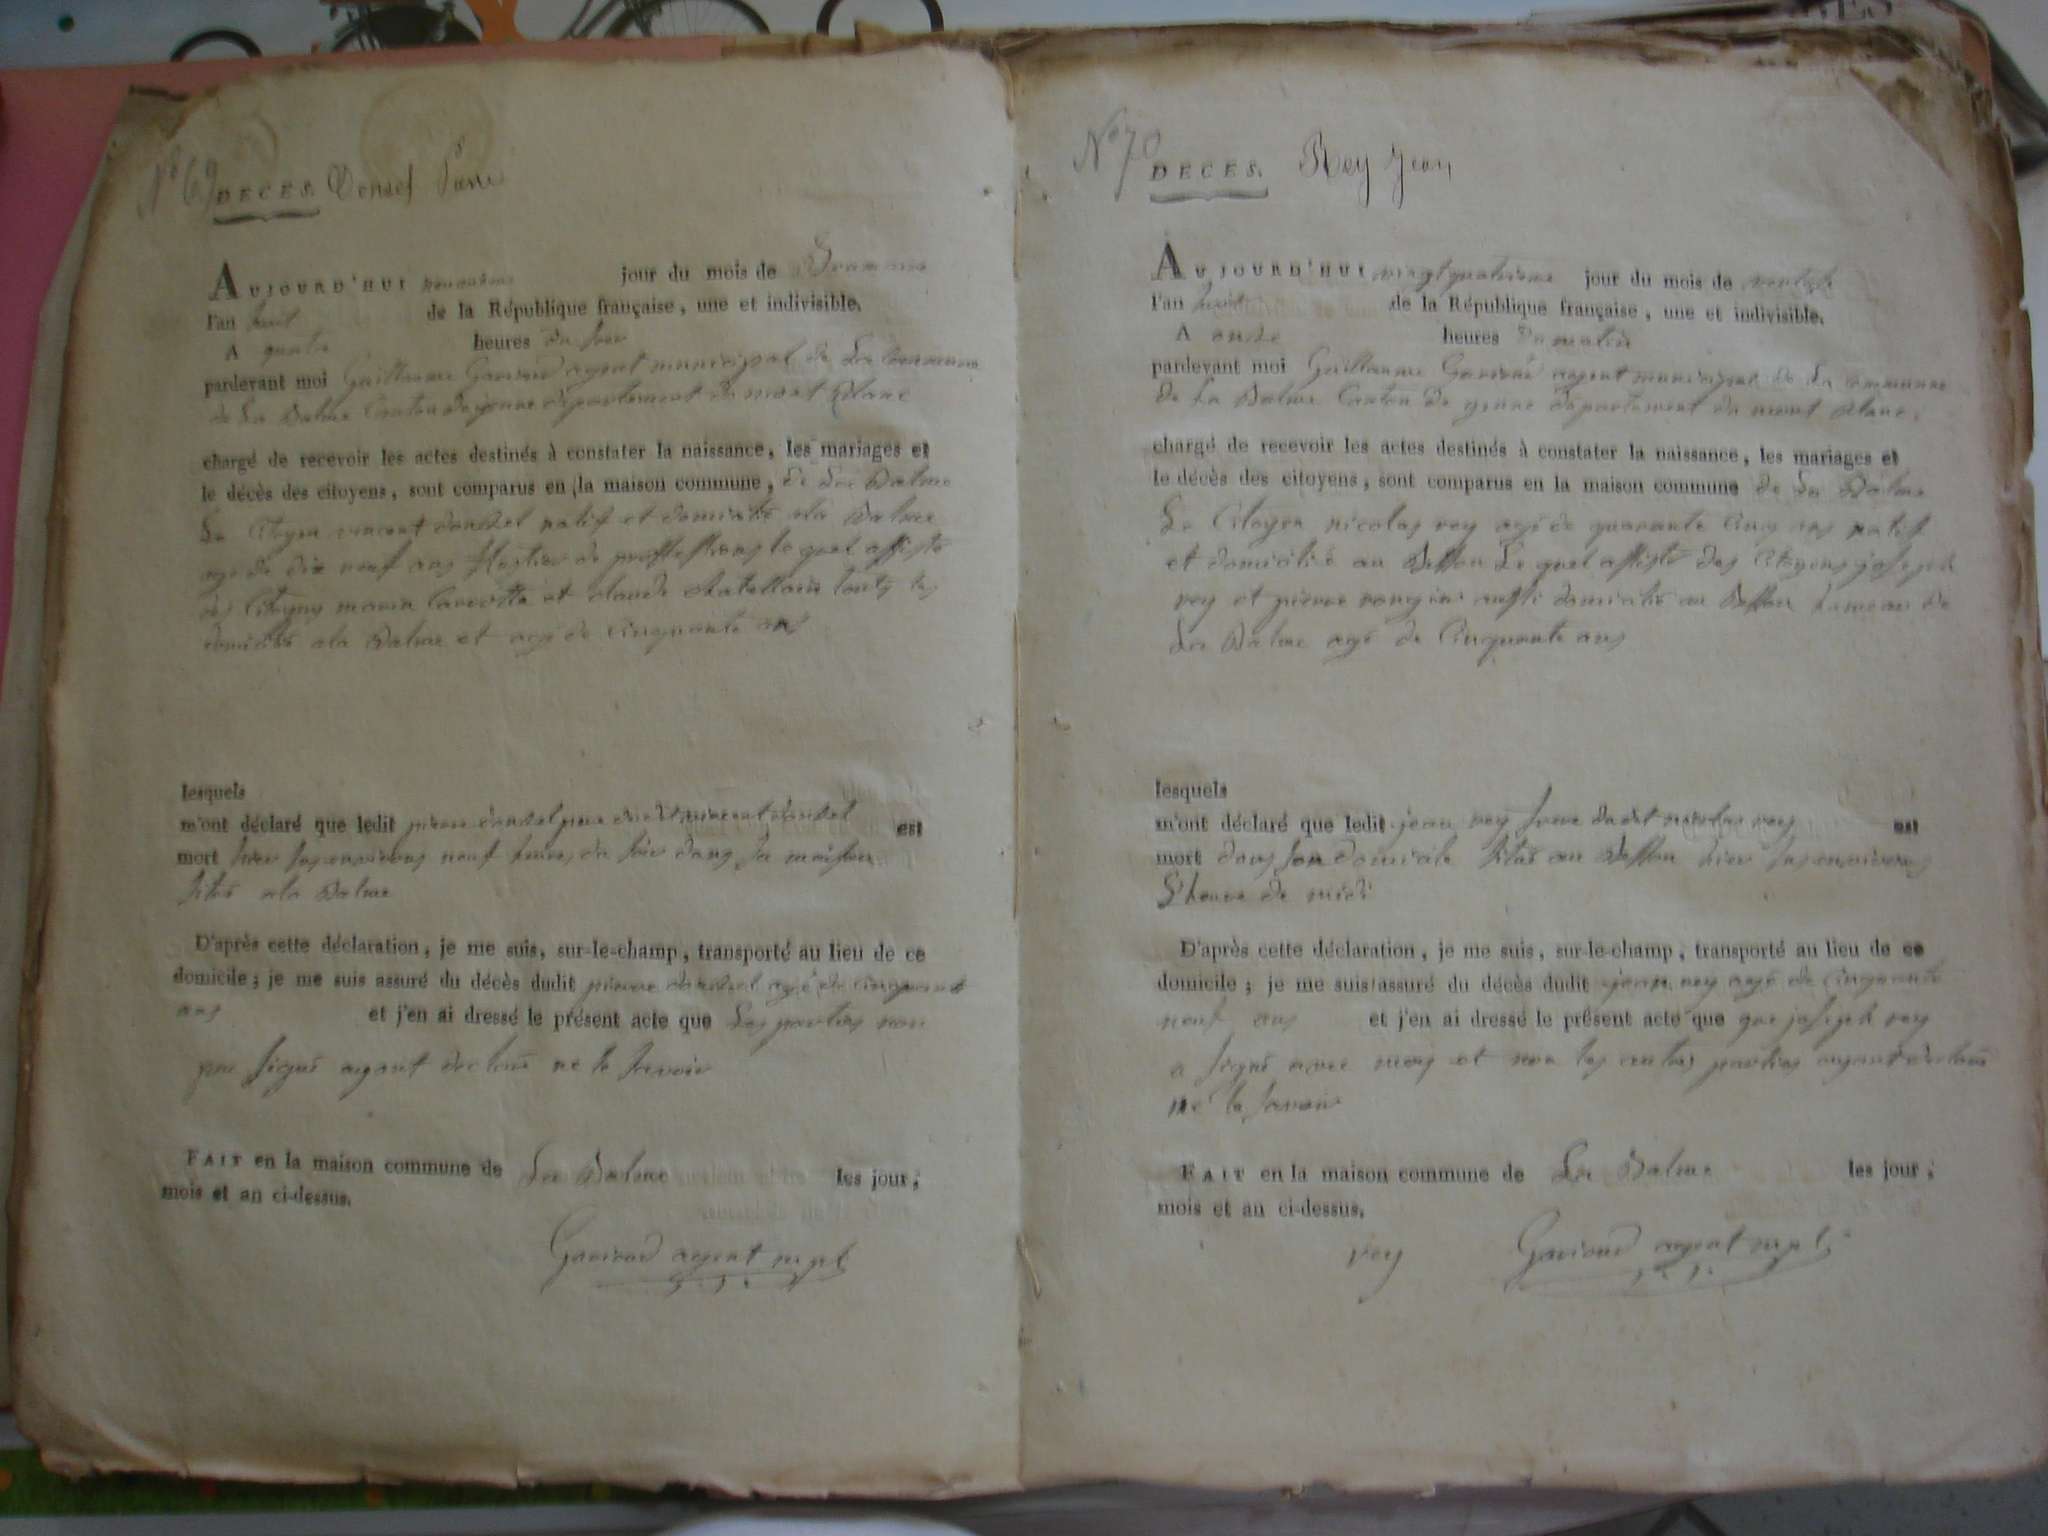 N° 69 DECES. Dondel Pierre
AUJOURD'HUI neuvieme jour du mois de Brumaire
l'an huit de la République française, une et indivisible.
A quatre heures du soir
pardevant moi Guillaume Gavioud agent municipal de La commune
de La Balme Canton de yenne département du mont Blanc
chargé de recevoir les actes destinés à constater la naissance, les mariages et
le décès des citoyens, sont comparus en la maison commune, de La Balme
Le Citoyen vincent dondel natif et domicilié ala Balme
agé de dix neuf ans de profession le quel assisté
des Citoyens et claude chatellain touts les
domicilié ala Balme et agé de cinquante ans
lesquels
m'ont déclaré que ledit pierre dondel pere dudit vincent dondel est
mort hier les environs neuf heures du soir dans sa maison
sitüé ala Balme
D'après cette déclaration, je me suis, sur-le-champ, transporté au lieu de ce
domicile; je me suis assuré du décès dudit pierre dondel agé de cinquante
ans et j'en ai dressé le présent acte que Les parties non
pas signé ayant declaré ne le savoir
FAIT en la maison commune de La Balme les jour,
mois et an ci-dessus.
Gavioud agent mpl
N° 70 DECES. Rey Jean
AUJOURD'HUI vingt quatrieme jour du mois de ventose
l'an huit de la République française, une et indivisible.
A onze heures du matin
pardevant moi Guillaume Gavioud agent municipal de La commune
de La Balme Canton de yenne département du mont Blanc.
chargé de recevoir les actes destinés à constater la naissance, les mariages et
le décès des citoyens, sont comparus en la maison commune de La Balme
Le Citoyen nicolas rey agé de quarante cinq ans natif
et domicilié au Le quel assisté des Citoyens joseph
rey et pierre aussi domicilié au hameau de
La Balme agé de Cinquante ans
lesquels
m'ont déclaré que ledit jean rey frere dudit nicolas rey est
mort dans son domicile sitüé au hier les environs
L'heure de midi
D'après cette déclaration, je me suis, sur-le-champ, transporté au lieu de ce
domicile; je me suis assuré du décès dudit jean rey agé de cinquante
neuf ans et j'en ai dressé le présent acte que que joseph rey
a signé avec moy et non les autres parties ayant declaré
ne le savoir
FAIT en la maison commune de La Balme les jour,
mois et an ci-dessus.
rey Gavioud agent mpl